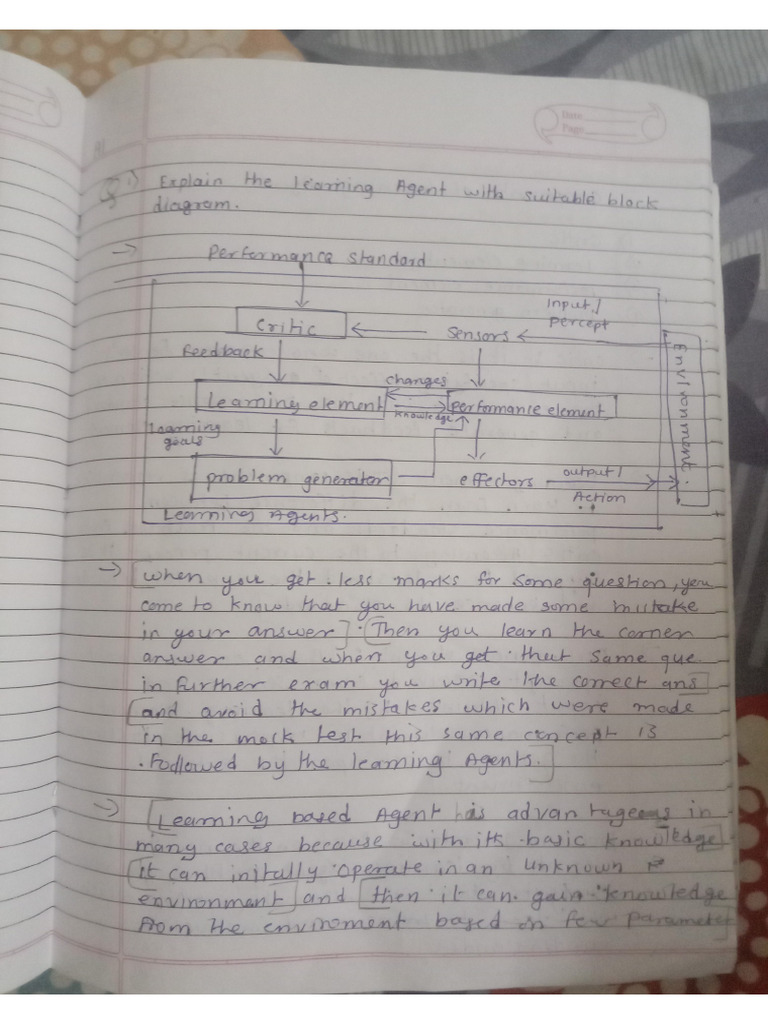 Date
Page
AI
Q.1) Explain the learning Agent with suitable block
diagram.
→ Performance standard
Input/
percept
Critic
sensors
Feedback
changes
Learning element
knowledge
performance element
Environment.
learning
goals
problem generator
effectors
output/
Action
Learning Agents.
→ When you get less marks for some question, you
come to know that you have made some mistake
in your answer. Then you learn the correct
answer and when you get that same que.
in further exam you write the correct ans
and avoid the mistakes which were made
in the mock test this same concept is
followed by the learning Agents.
→ Learning based Agent has advantageous in
many cases because with its basic knowledge
it can initally operate in an unknown
environment and then it can gain knowledge
from the enviroment based on few parameter